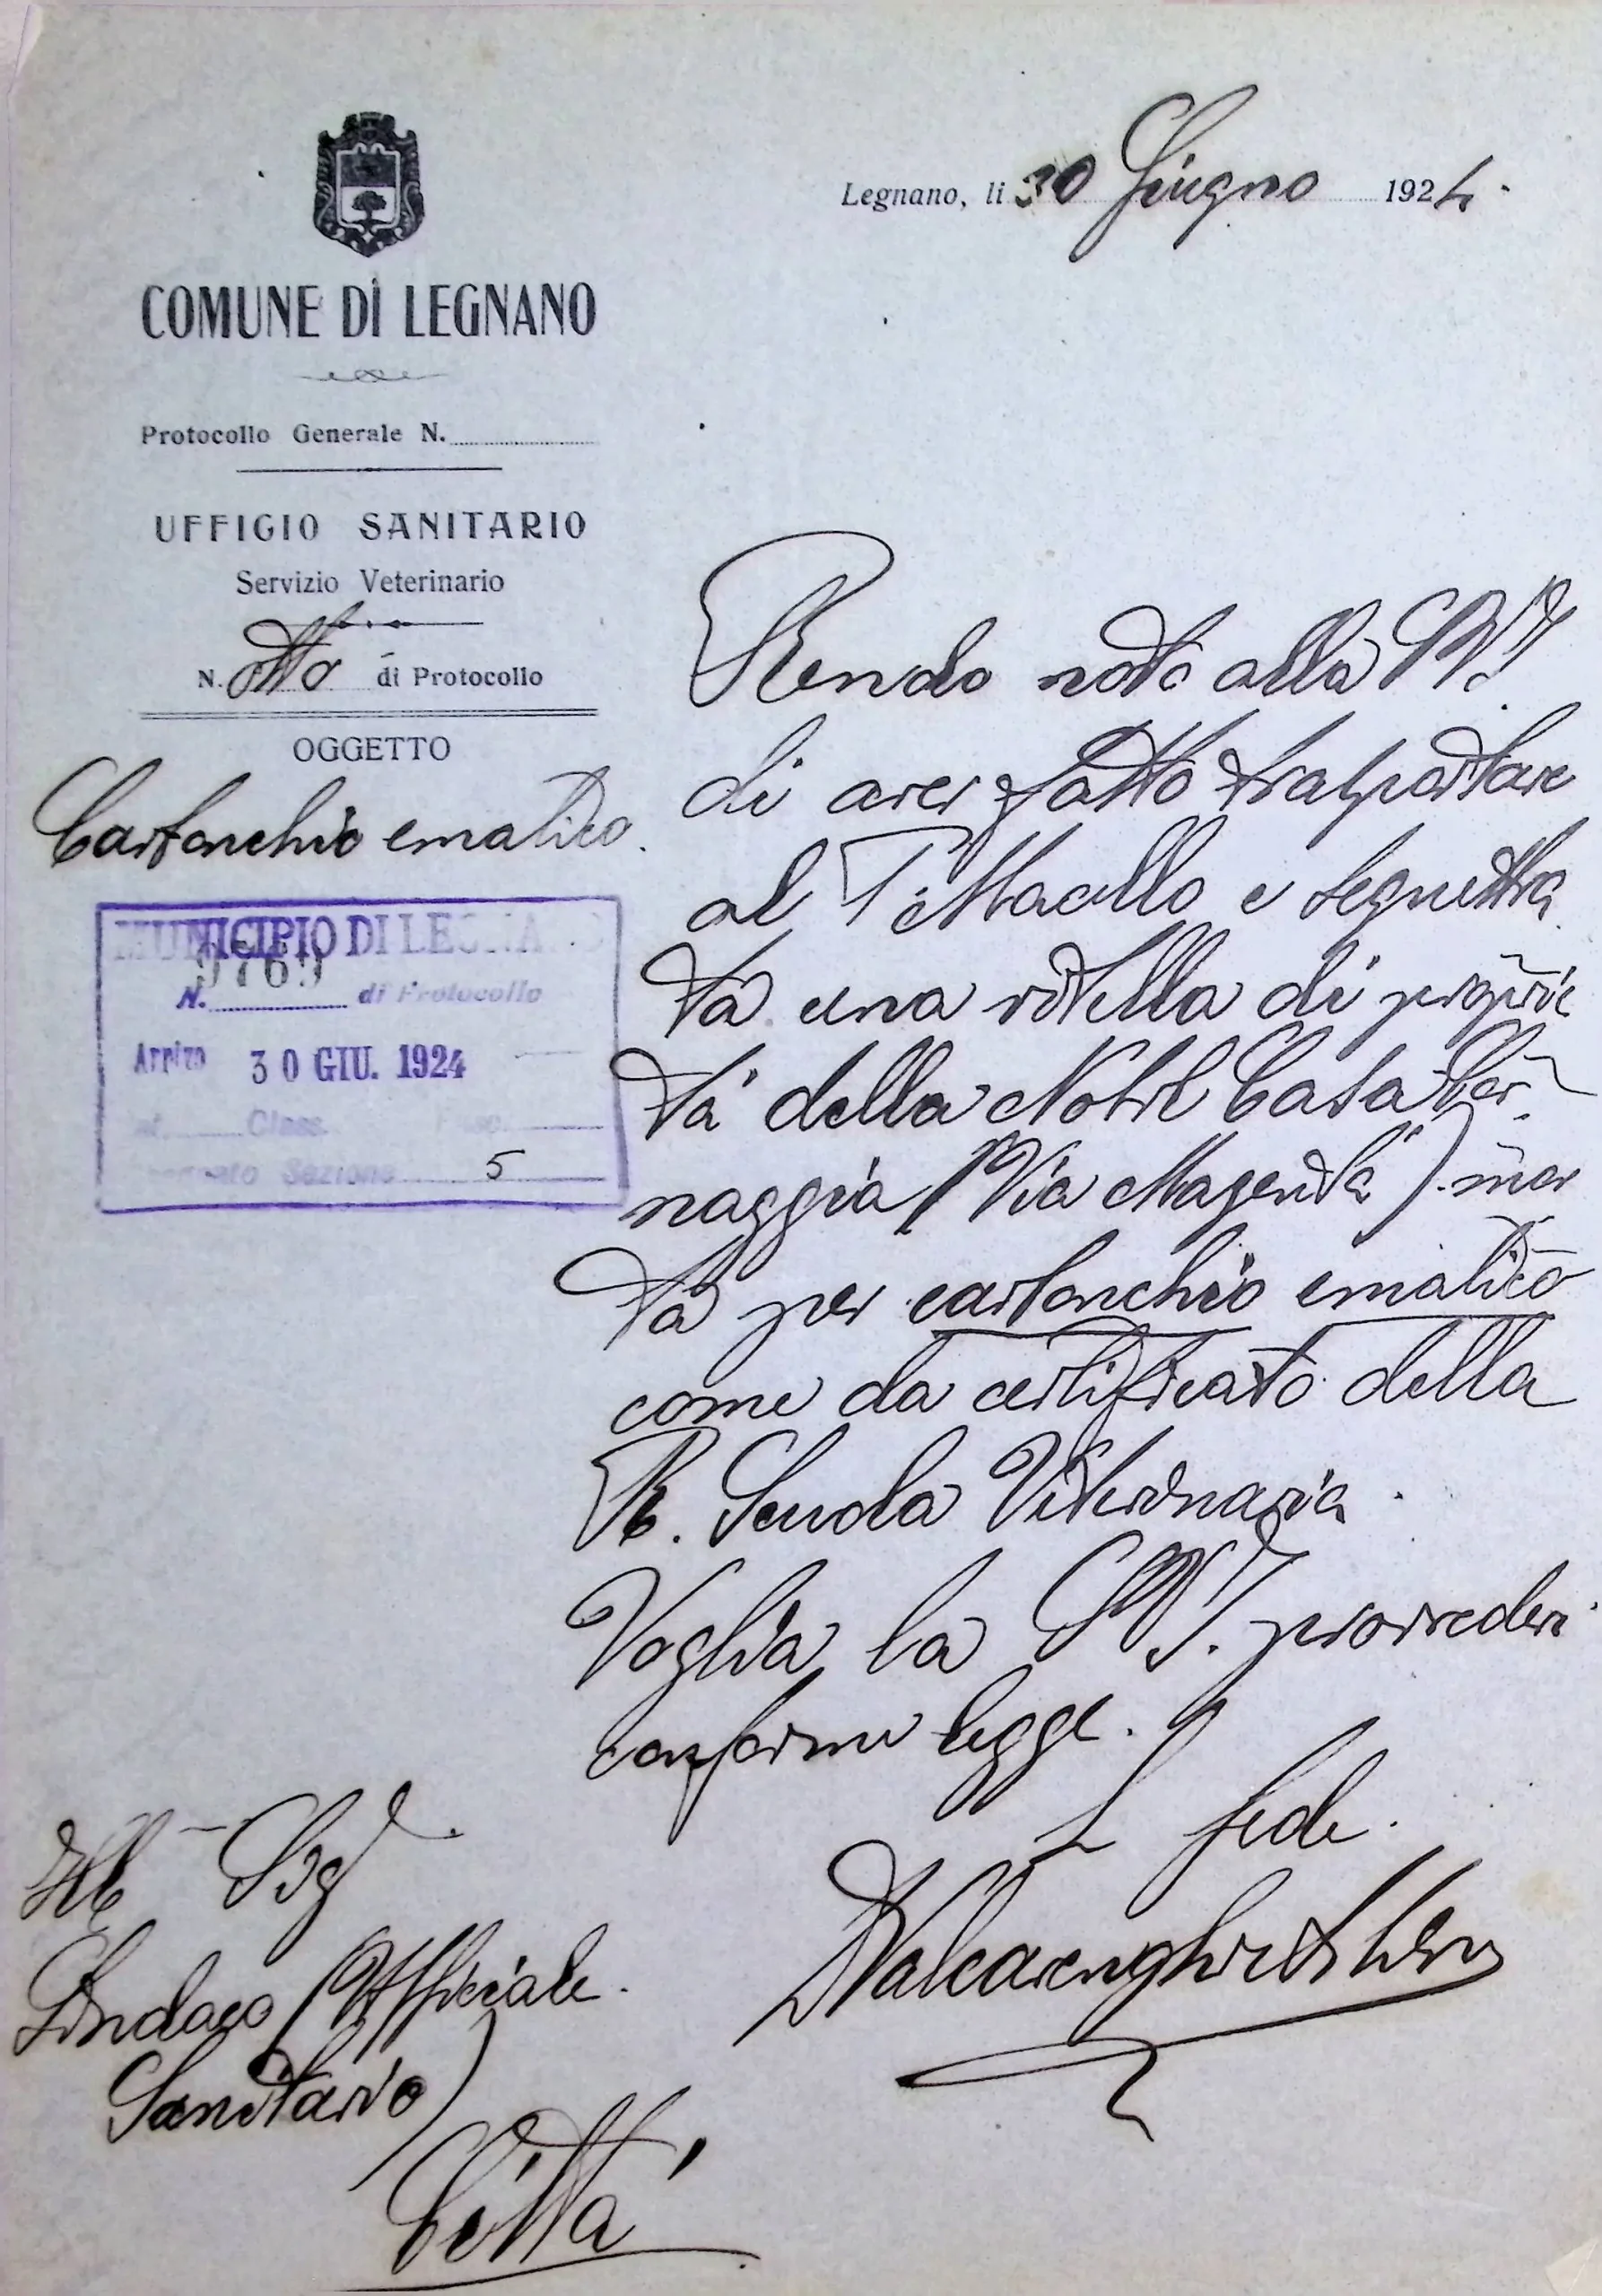 Legnano, li 30 Giugno 1924.
COMUNE DI LEGNANO
Protocollo Generale N.
UFFICIO SANITARIO
Servizio Veterinario
N. otto di Protocollo
OGGETTO
Carbonchio ematico.
MUNICIPIO DI LEGNANO
9769
N. di Protocollo
Arrivo 30 GIU. 1924
Class. Fasc.
Sezione 5
Rendo noto alla S.V.I.
di aver fatto trasportare
al Macello e sequestra
ta una vitella di proprie
tà della Nobil Casa
naggia (Via Magenta) mor
ta per carbonchio ematico
come da certificato della
R. Scuola Veterinaria.
Voglia la S.V.I. provvedere
conforme legge.
In fede.
Ill Sig
Sindaco (Ufficiale
Sanitario)
Città